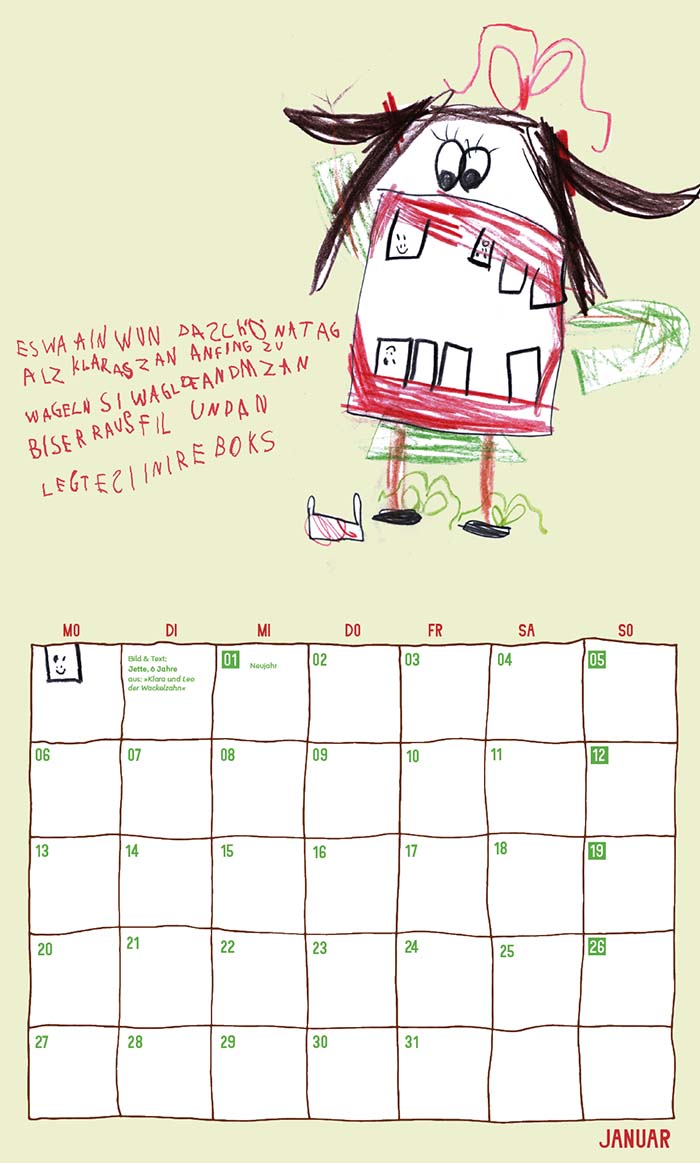 ES WA AIN WUN DAZSCHÖ NATAG
ALZ KLARAS ZAN ANFING ZU
WAGELN SI WAGLDE AN DM ZAN
BIS ER RAUS FIL UNDAN
LEGTE SI IN IRE BOKS
MO DI MI DO FR SA SO
Bild & Text:
Jette, 6 Jahre
aus: »Klara und Leo
der Wackelzahn«
01 Neujahr 02 03 04 05
06 07 08 09 10 11 12
13 14 15 16 17 18 19
20 21 22 23 24 25 26
27 28 29 30 31
JANUAR